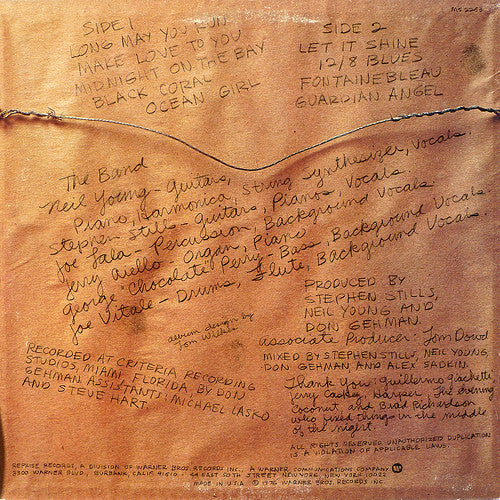 MS 2253
SIDE 1
LONG MAY YOU RUN
MAKE LOVE TO YOU
MIDNIGHT ON THE BAY
BLACK CORAL
OCEAN GIRL
SIDE 2
LET IT SHINE
12/8 BLUES
FONTAINEBLEAU
GUARDIAN ANGEL
The Band
Neil Young - Guitars, String Synthesizer, Vocals.
Piano, Harmonica,
Stephen Stills - Guitars, Pianos, Vocals.
Joe Lala - Percussion, Background Vocals
Jerry Aiello - Organ, Piano
George "Chocolate" Perry - Bass, Background Vocals
Joe Vitale - Drums, Flute, Background Vocals.
album design by
Tom Wilkes
PRODUCED BY
STEPHEN STILLS,
NEIL YOUNG AND
DON GEHMAN.
Associate Producer: Tom Dowd
MIXED BY STEPHEN STILLS, NEIL YOUNG,
DON GEHMAN AND ALEX SADKIN.
RECORDED AT CRITERIA RECORDING
STUDIOS, MIAMI FLORIDA, BY DON
GEHMAN ASSISTANTS: MICHAEL LASKO
AND STEVE HART.
Thank You: Guillermo Giachetti,
Jerry Harper, The evening
Coconut, and Brad Richardson
who fixed things in the middle
of the night.
ALL RIGHTS RESERVED UNAUTHORIZED DUPLICATION
IS A VIOLATION OF APPLICABLE LAWS.
REPRISE RECORDS, A DIVISION OF WARNER BROS. RECORDS INC., A WARNER COMMUNICATIONS COMPANY
3300 WARNER BLVD., BURBANK, CALIF. 91510 · 44 EAST 50TH STREET NEW YORK, NEW YORK 10022
MADE IN U.S.A. © 1976 WARNER BROS. RECORDS INC.